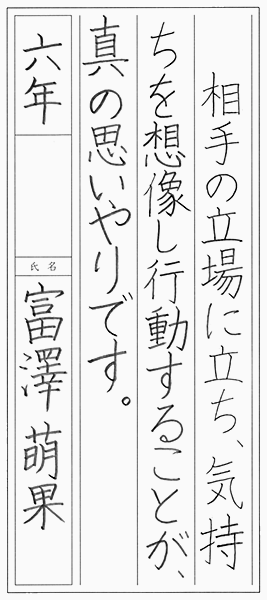 相手の立場に立ち、気持
ちを想像し行動することが、
真の思いやりです。
六年
氏名
富澤萌果